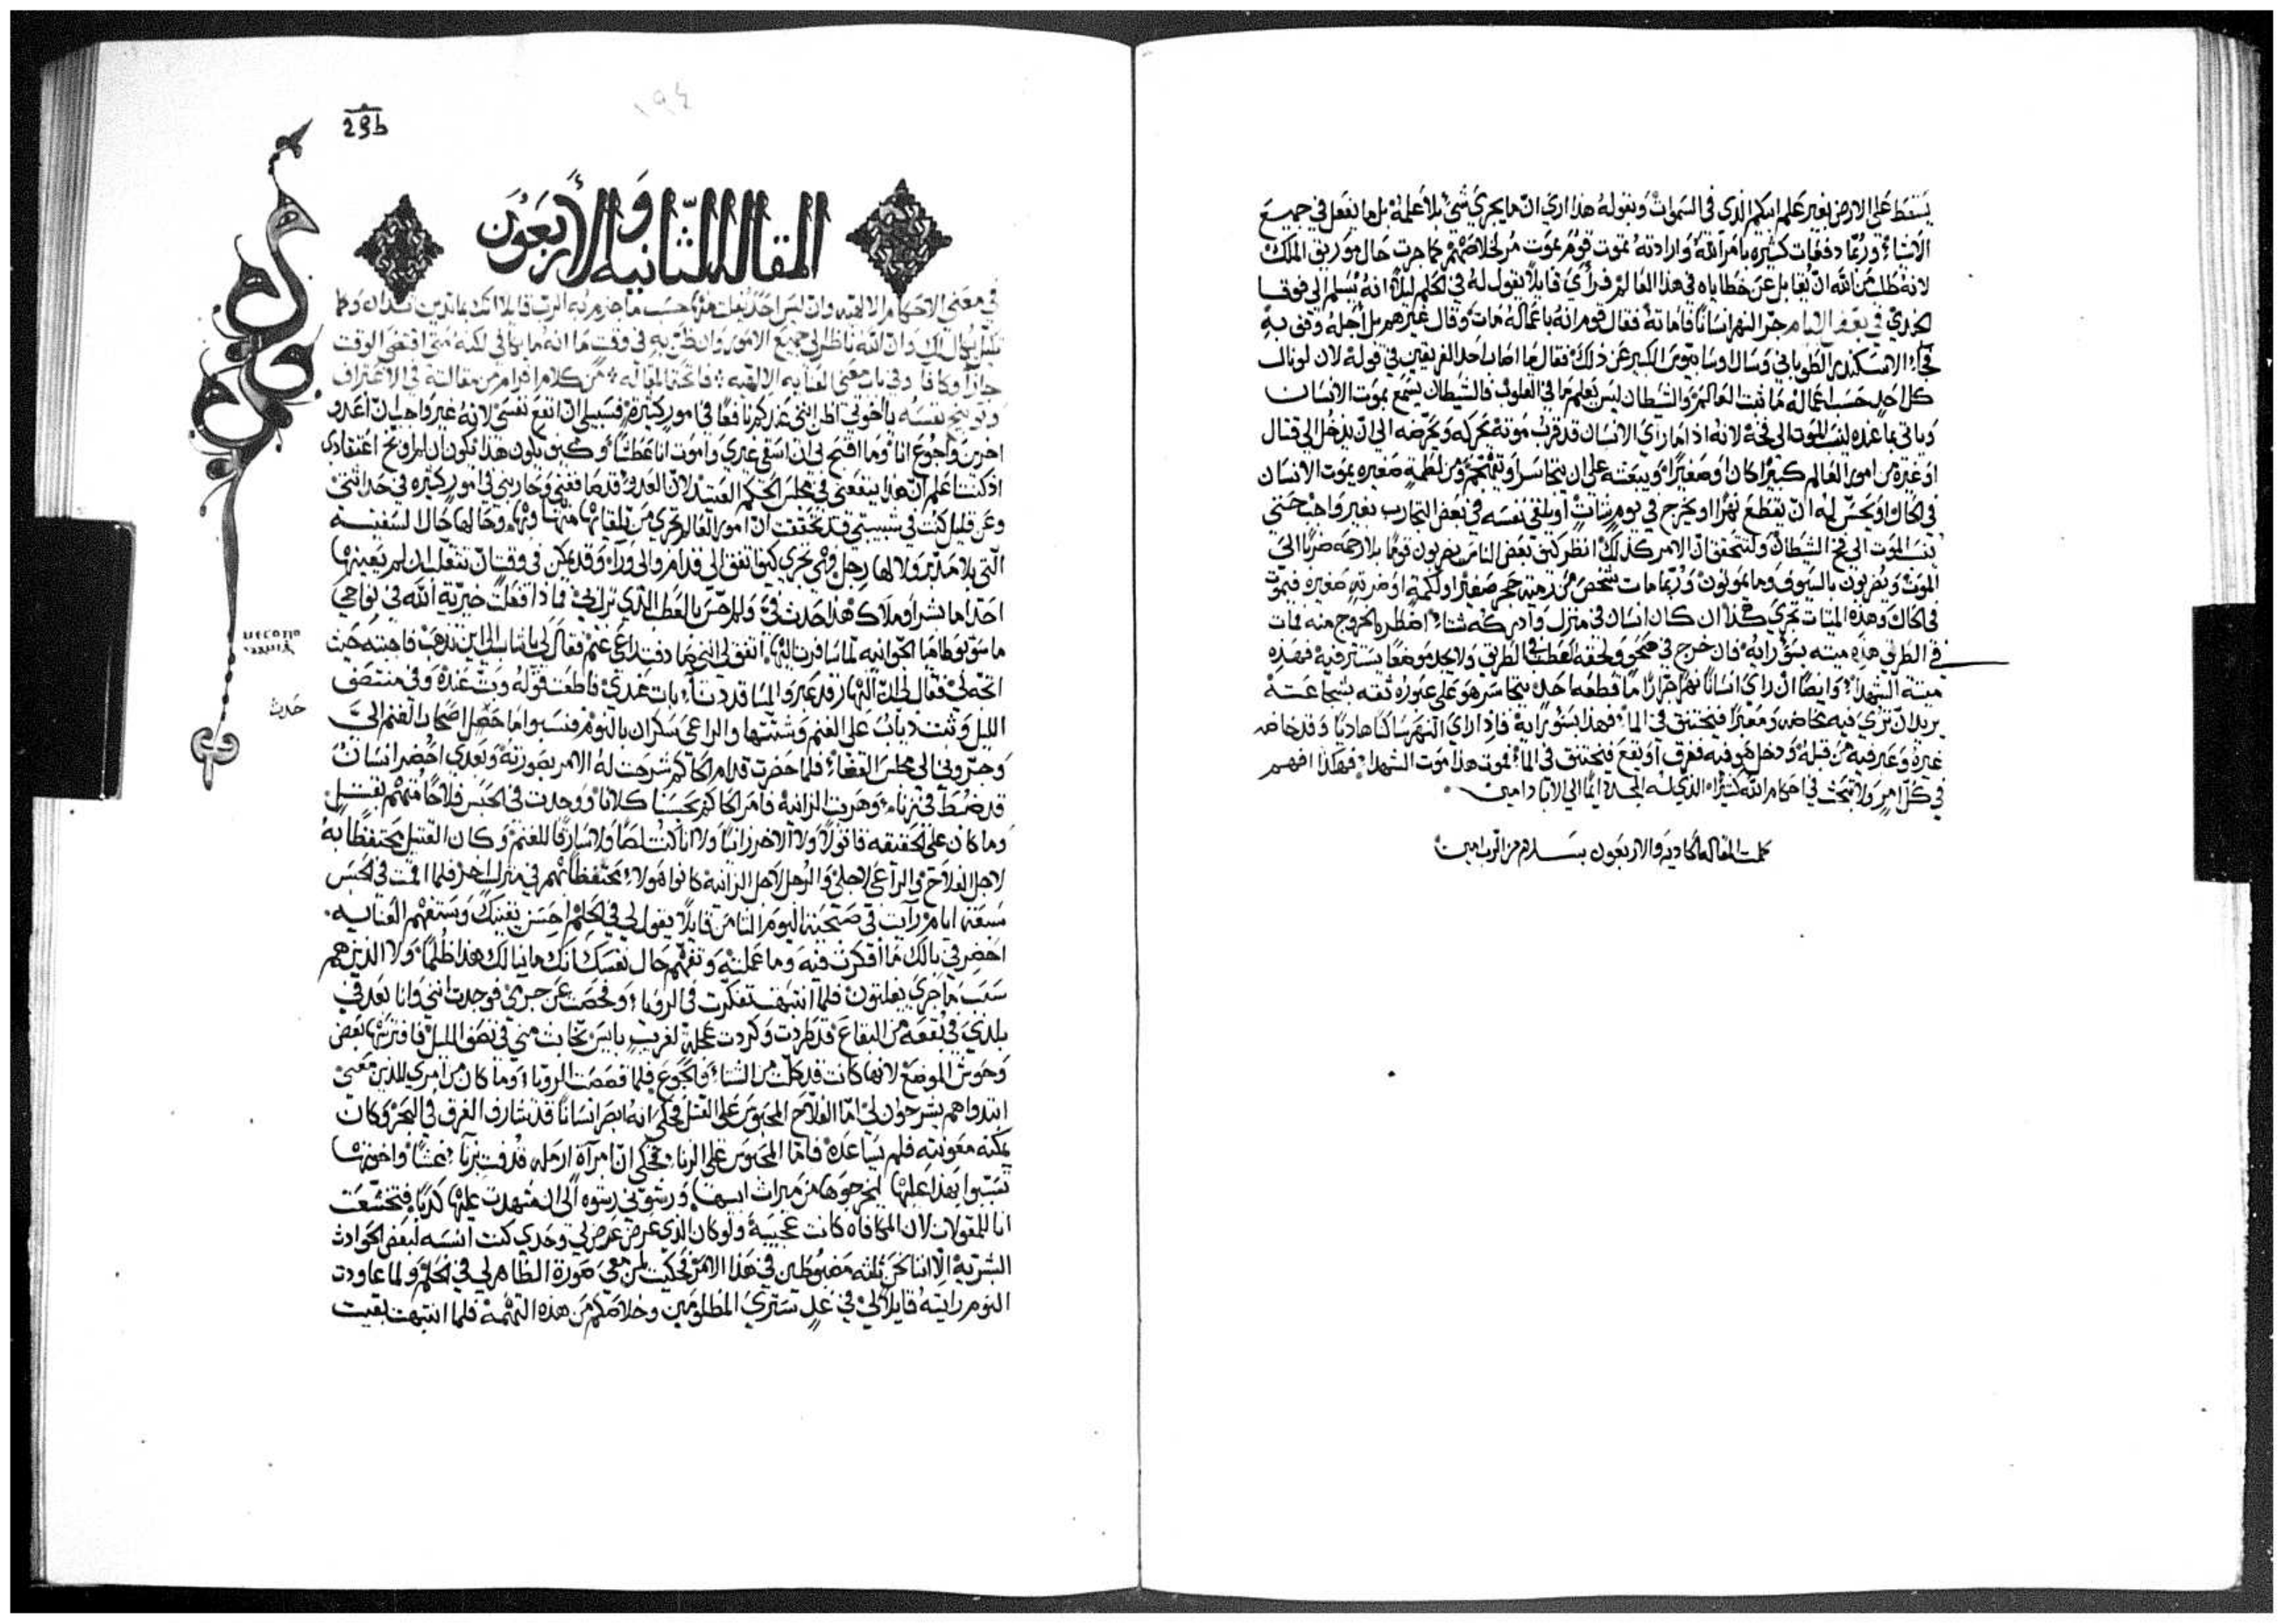 يسقط على الارض بغير علم ابيكم الذي في السموات وبقوله هذا اري ان ما يجري شي بلا علمه بل ما يفعل في جميع
الاشياء وربما دفعات كثيره بامر الله وارادته يموت قوم بموت مر لخلاصهم كما جرت حال موريق الملك
لانه طلب من الله ان يقابل عن خطاياه في هذا العالم فراي قايلا يقول له في الحلم ليلا انه يسلم الي فوقا
الجندي في بعض الايام جر النهر انسانا فاماته فقال قوم انه باعماله مات وقال غيرهم بل اجله وفي به
الاسكندري الطوباني وسال اوسابيوس الكبير عن ذلك فقال ما اصاب احد الفريقين في قوله لان لو نال
كل احد حسب اعماله ما ثبت العالم والشيطان ليس يعلم ما في القلوب فالشيطان يسمع بموت الانسان
وياتي بما عنده لسبب الموت الي فخه لانه اذا ما راي الانسان قد قرب موته يحركه ويحرضه الي ان يدخل الي قتال
او غيره من امور العالم كبيرا كان او صغيرا ويبعثه على ان يتجاسر ويقتحم ومن لطمة صغيره يموت الانسان
في الحال او يحسن له ان يقطع نهرا او يخرج في يوم شات او يلقي نفسه في بعض التجارب بغير واجب حتي
ينسب الموت الي فخ الشيطان ولتتحقق ان الامر كذلك انظر كيف بعض الناس يضربون قوما بلا رحمه ضربا الي
الموت ويضربون بالسيوف وما يموتون وربما مات شخص من رميه حجر صغير او لكمة او ضربة صغيره فيموت
في الحال وهذه الميتات تجري هكذا ان كان انسان في منزل وادركه شتا اضطر بالخروج منه فمات
في الطريق هذه ميته بسو رايه فان خرج في صحو ولحقه العطب في الطريق ولا يجد موضعا يستتر فيه فهذه
ميتة الشهدا وايضا ان راي انسانا نهرا جرارا ما قطعه احد يتجاسر هو على عبوره ثقه بشجاعته
يريد ان يري فيه مخاضه ومعبرا فيختنق في الما فهذا بسو رايه فاذا راي النهر ساكنا هاديا وقد خاضه
غيره وعبر فيه من قبله ودخل هو فيه فغرق او يقع فيختنق في الما فموت هذا موت الشهدا فهكذا افهم
في كل امر ولا تبحث في احكام الله كثيرا الذي له المجد دايما الي الاباد امين
كملت المقاله الحاديه والاربعون بسلام من الرب امين
29b
١٩٤
المقاله الثانيه والاربعون
في معني الاحكام الالهيه وان ليس احد يفلت منها حسب ما جزم به الرب قايلا انك بما تدين تدان وكما
تكيل يكال لك وان الله ناظر الي جميع الامور وان ظن به في وقت ما انه ما يكافي لكنه متي اقتضي الوقت
جازا وكافا وفي باب معني العنايه الالهيه فاتحة المقاله من كلام افرام من مقالته في الاعتراف
وتوبيخ نفسه يا اخوتي اظن انني عندكم نافعا في امور كثيره فسبيلي ان انفع نفسي لانه غير واجب ان اغدو
اخرين واجوع انا وما اقبح لي ان اسقي غيري واموت انا عطشا وكيف يكون هذا
وعن قليل كنت في شبيبتي قد تحققت ان امور العالم تجري من تلقايها وحالها حال السفينه
التي بلا مدبر ولا لها رجل وهي تجري كيف اتفق الي قدام والي ورا وقد يمكن في وقت ان تنقلب ان لم يعينها
احد اما بشرا او ملاك هكذا حدث لي ولم احس بالعطب الذي نزل بي فماذا فعلت خيرية الله في نواحي
ما بين بوطاميا الجوانيه لما سافرت اليها اتفق لي انني صادفت راعي غنم فقال لي يا شاب الي اين تذهب فاجبته حيث
اتجه لي فقال لي ان النهار قد عبر والمسا قد دنا بات عندي فاطعت قوله وبت عنده وفي منتصف
الليل وثبت دياب على الغنم وشتتها والراعي سكران بالنوم فنسبوا ما حصل اصحاب الغنم الي
وجروني الي مجلس القضا فلما حضرت قدام الحاكم شرحت له الامر بصورته وبعدي احضر انسان
قد ضبط في زنا وهربت الزانيه فامر الحاكم بحبسنا كلانا ووجدت في الحبس فلاحا متهم بقتل
وما كان على الحقيقه قاتولا ولا الاخر زانيا ولا انا كنت لصا ولا سارقا للغنم وكان القتيل محتفظا به
لاجل الفلاح والراعي لاجلي والرجل لاجل الزانيه كانوا هولا محتفظا بهم في منزل اخر فلما اقمت في الحبس
سبعة ايام رايت في صبحية اليوم الثامن قايلا يقول لي في الحلم احسن يقينك وستفهم العنايه
احضر في بالك ما افكرت فيه وما عملته وتفهم حال نفسك انك ما نالك هذا ظلما ولا الذين هم
سبب ما جري يفلتون فلما انتبهت تفكرت في الرويا وفحصت عن جرمي فوجدت انني وانا بعد في
بلدي في بقعة من البقاع قد طردت وكردت عجلة لغريب بايس بخابث مني في نصف الليل فافترستها بعض
وحوش الموضع لانها كانت قد كلت من الشتا والجوع فلما قصصت الرويا وما كان من امري للذين معي
ابتدوا هم يشرحون لي اما الفلاح المحبوس على القتل فحكي انه ابصر انسانا قد شارف الغرق في البحر وكان
يمكنه معونته فلم يساعده فاما المحبوس على الزنا فحكي ان امراة ارمله قرفت بزنا غشا واخوتها
تسببوا بهذا عليها ليخرجوها من ميراث ابيها ورشوني رشوه الي ان شهدت عليها كذبا فتخشعت
انا للمقولات لان المكافاه كانت عجيبة ولو كان الذي عرض عرض لي وحدي كنت انسبه لبعض الحوادث
البشرية الا اننا نحن ثلثه مضبوطين في هذا الامر فحكيت لمن معي صورة الظاهر لي في الحلم ولما عاودت
النوم رايته قايلا لي في غد تستري المظلومين وخلاصكم من هذه التهمه فلما انتبهت بقيت
حدث